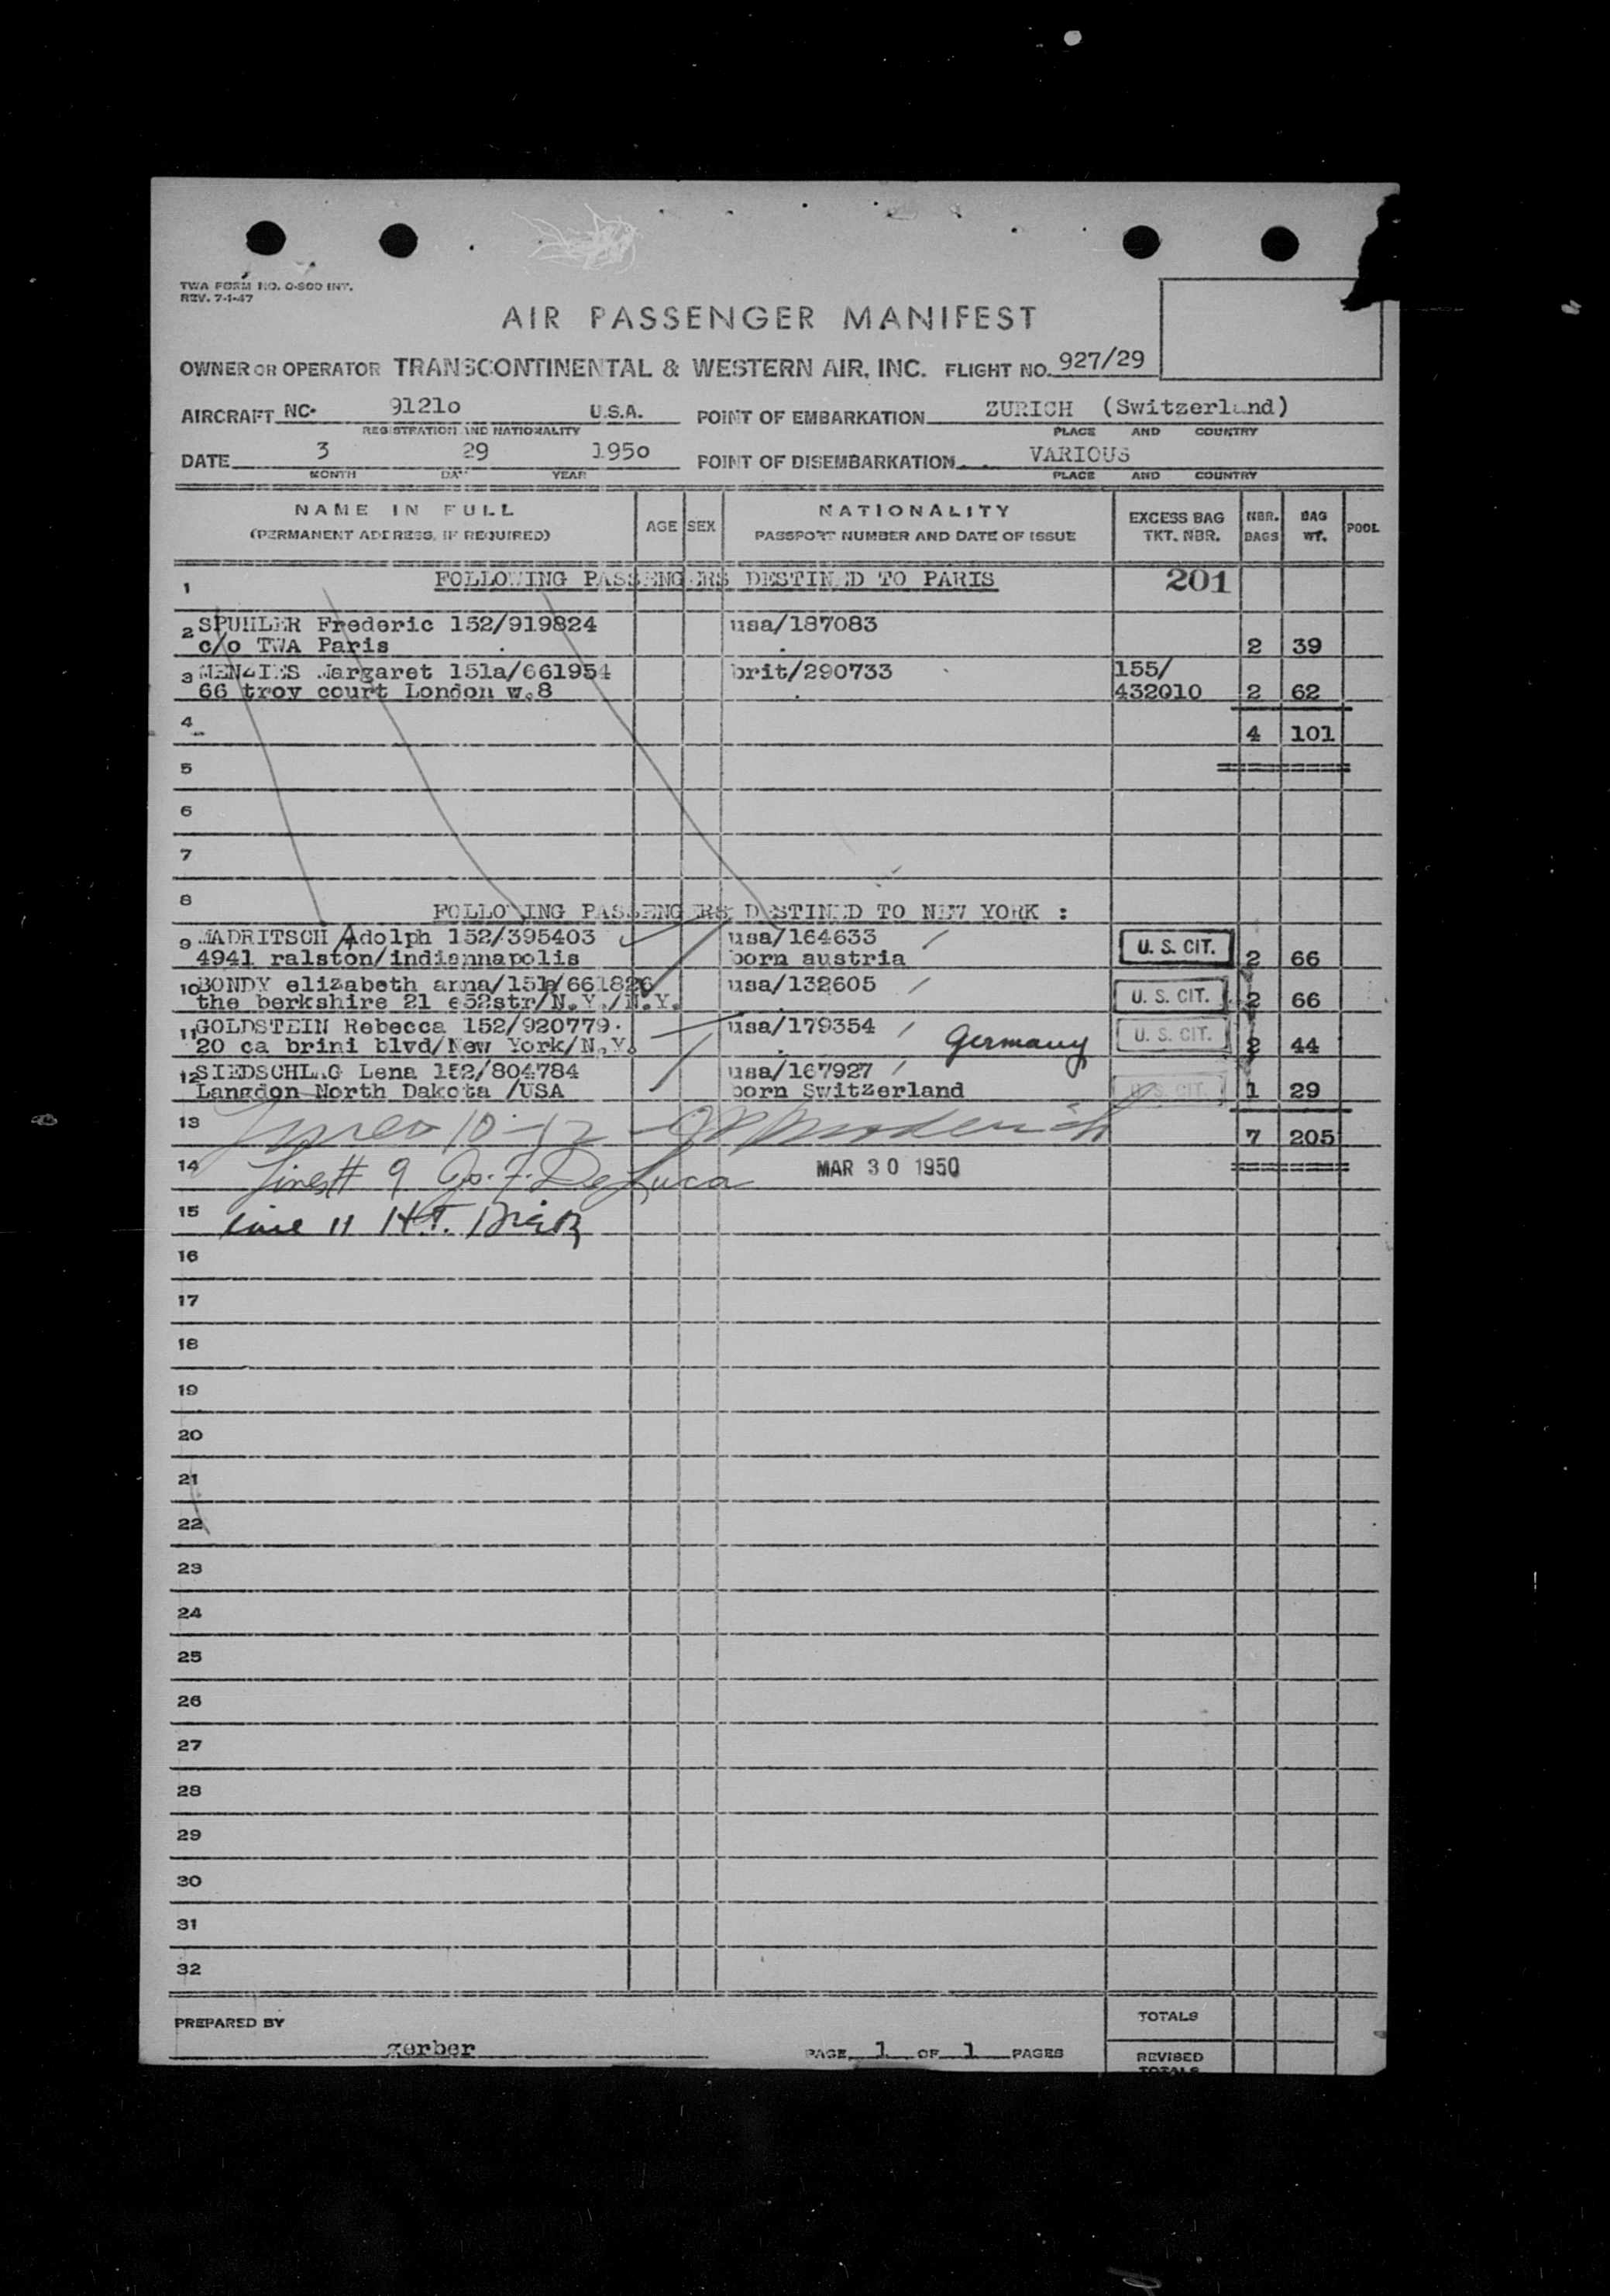 TWA FORM NO. O-800 INT.
REV. 7-1-47
AIR PASSENGER MANIFEST
OWNER OR OPERATOR TRANSCONTINENTAL & WESTERN AIR, INC. FLIGHT NO. 927/29
AIRCRAFT NC- 9121o U.S.A. POINT OF EMBARKATION ZURICH (Switzerland)
REGISTRATION AND NATIONALITY PLACE AND COUNTRY
DATE 3 29 195o POINT OF DISEMBARKATION VARIOUS
MONTH DAY YEAR PLACE AND COUNTRY
NAME IN FULL AGE SEX NATIONALITY EXCESS BAG NBR. BAG POOL
(PERMANENT ADDRESS, IF REQUIRED) PASSPORT NUMBER AND DATE OF ISSUE TKT. NBR. BAGS WT.
1 FOLLOWING PASSENGERS DESTINED TO PARIS 201
2 SPUHLER Frederic 152/919824 usa/187083
c/o TWA Paris 2 39
3 MENZIES Margaret 151a/661954 brit/290733 155/
66 troy court London w.8 432010 2 62
4 4 101
5
6
7
8
FOLLOWING PASSENGERS DESTINED TO NEW YORK :
9 MADRITSCH Adolph 152/395403 usa/164633 U. S. CIT.
4941 ralston/indiannapolis born austria 2 66
10 BONDY elizabeth anna/151a/661826 usa/132605 U. S. CIT.
the berkshire 21 e52str/N.Y./N.Y. 2 66
11 GOLDSTEIN Rebecca 152/920779. usa/179354 U. S. CIT.
20 ca brini blvd/New York/N.Y. Germany 2 44
12 SIEDSCHLAG Lena 152/804784 usa/167927
Langdon North Dakota /USA born Switzerland U. S. CIT. 1 29
13 10-12 7 205
14 Line# 9 Jo. F. DeLuca MAR 30 1950
15 Line 11 H.T.
16
17
18
19
20
21
22
23
24
25
26
27
28
29
30
31
32
PREPARED BY TOTALS
gerber PAGE 1 OF 1 PAGES REVISED
TOTALS